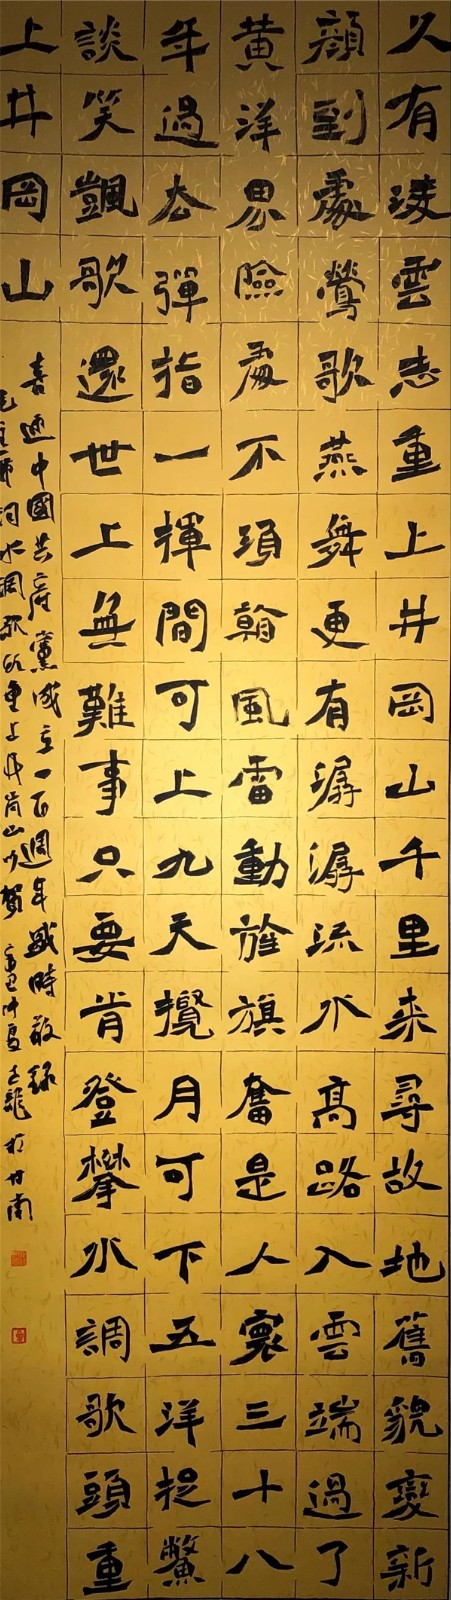 久有淩雲志重上井岡山千里来尋故地舊貌變新
顏到處鶯歌燕舞更有潺潺流水高路入雲端過了
黄洋界險處不湏翰風雷動旌旗奮是人寰三十八
年過去彈指一揮間可上九天攬月可下五洋捉鱉
談笑颽歌還世上無難事只要肯登攀水調歌頭重
上井岡山
喜迎中國共産黨成立一百週年盛時敬録
毛主席詞水調歌頭重上井岡山以賀辛丑仲夏